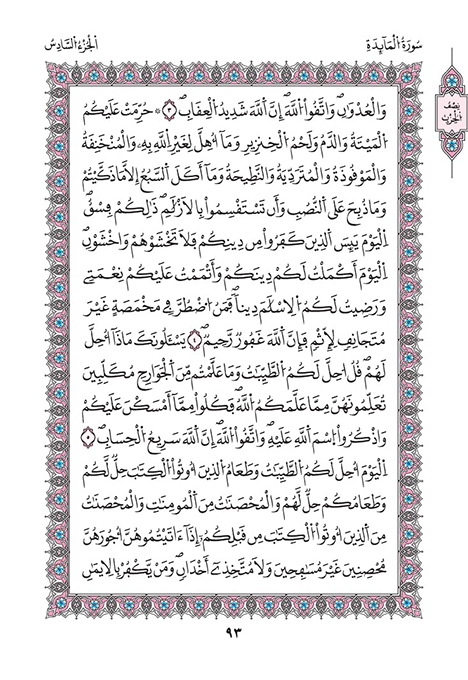 سُورَةُ الْمَآئِدَةِ
الجُزْءُ السَّادِسُ
نِصْفُ الْحِزْبِ
وَالْعُدْوَٰنِۖ وَاتَّقُوا۟ اللَّهَۖ إِنَّ اللَّهَ شَدِيدُ الْعِقَابِۖ ٣ ۞ حُرِّمَتْ عَلَيْكُمُ
الْمَيْتَةُ وَالدَّمُ وَلَحْمُ الْخِنزِيرِ وَمَآ أُهِلَّ لِغَيْرِ اللَّهِ بِهِۦ وَالْمُنْخَنِقَةُ
وَالْمَوْقُوذَةُ وَالْمُتَرَدِّيَةُ وَالنَّطِيحَةُ وَمَآ أَكَلَ السَّبُعُ إِلَّا مَا ذَكَّيْتُمْ
وَمَا ذُبِحَ عَلَى النُّصُبِ وَأَن تَسْتَقْسِمُوا۟ بِالَازْلَٰمِۖ ذَٰلِكُمْ فِسْقٌۖ
الْيَوْمَ يَئِسَ الَّذِينَ كَفَرُوا۟ مِن دِينِكُمْ فَلَا تَخْشَوْهُمْ وَاخْشَوْنِۖ
الْيَوْمَ أَكْمَلْتُ لَكُمْ دِينَكُمْ وَأَتْمَمْتُ عَلَيْكُمْ نِعْمَتِے
وَرَضِيتُ لَكُمُ الِاسْلَٰمَ دِيناٗۖ فَمَنُ اضْطُرَّ فِے مَخْمَصَةٍ غَيْرَ
مُتَجَانِفٖ لِّإِثْمٖ فَإِنَّ اللَّهَ غَفُورٞ رَّحِيمٞۖ ٤ يَسْـَٔلُونَكَ مَاذَآ أُحِلَّ
لَهُمْۖ قُلُ احِلَّ لَكُمُ الطَّيِّبَٰتُ وَمَا عَلَّمْتُم مِّنَ الْجَوَارِحِ مُكَلِّبِينَ
تُعَلِّمُونَهُنَّ مِمَّا عَلَّمَكُمُ اللَّهُۖ فَكُلُوا۟ مِمَّآ أَمْسَكْنَ عَلَيْكُمْ
وَاذْكُرُوا۟ اسْمَ اللَّهِ عَلَيْهِۖ وَاتَّقُوا۟ اللَّهَۖ إِنَّ اللَّهَ سَرِيعُ الْحِسَابِۖ ٥
الْيَوْمَ أُحِلَّ لَكُمُ الطَّيِّبَٰتُ وَطَعَامُ الَّذِينَ أُوتُوا۟ الْكِتَٰبَ حِلّٞ لَّكُمْ
وَطَعَامُكُمْ حِلّٞ لَّهُمْ وَالْمُحْصَنَٰتُ مِنَ الْمُومِنَٰتِ وَالْمُحْصَنَٰتُ
مِنَ الَّذِينَ أُوتُوا۟ الْكِتَٰبَ مِن قَبْلِكُمُۥٓ إِذَآ ءَاتَيْتُمُوهُنَّ أُجُورَهُنَّ
مُحْصِنِينَ غَيْرَ مُسَٰفِحِينَ وَلَا مُتَّخِذِےٓ أَخْدَانٖۖ وَمَنْ يَّكْفُرْ بِالِايمَٰنِ
٩٣